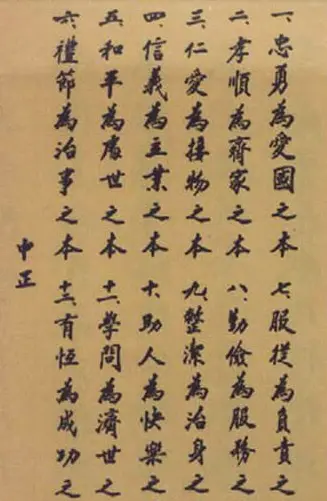 一、忠勇為愛國之本
二、孝順為齊家之本
三、仁愛為接物之本
四、信義為立業之本
五、和平為處世之本
六、禮節為治事之本
七、服從為負責之
八、勤儉為服務之
九、整潔為治身之
十、助人為快樂之
十一、學問為濟世之
十二、有恆為成功之
中正